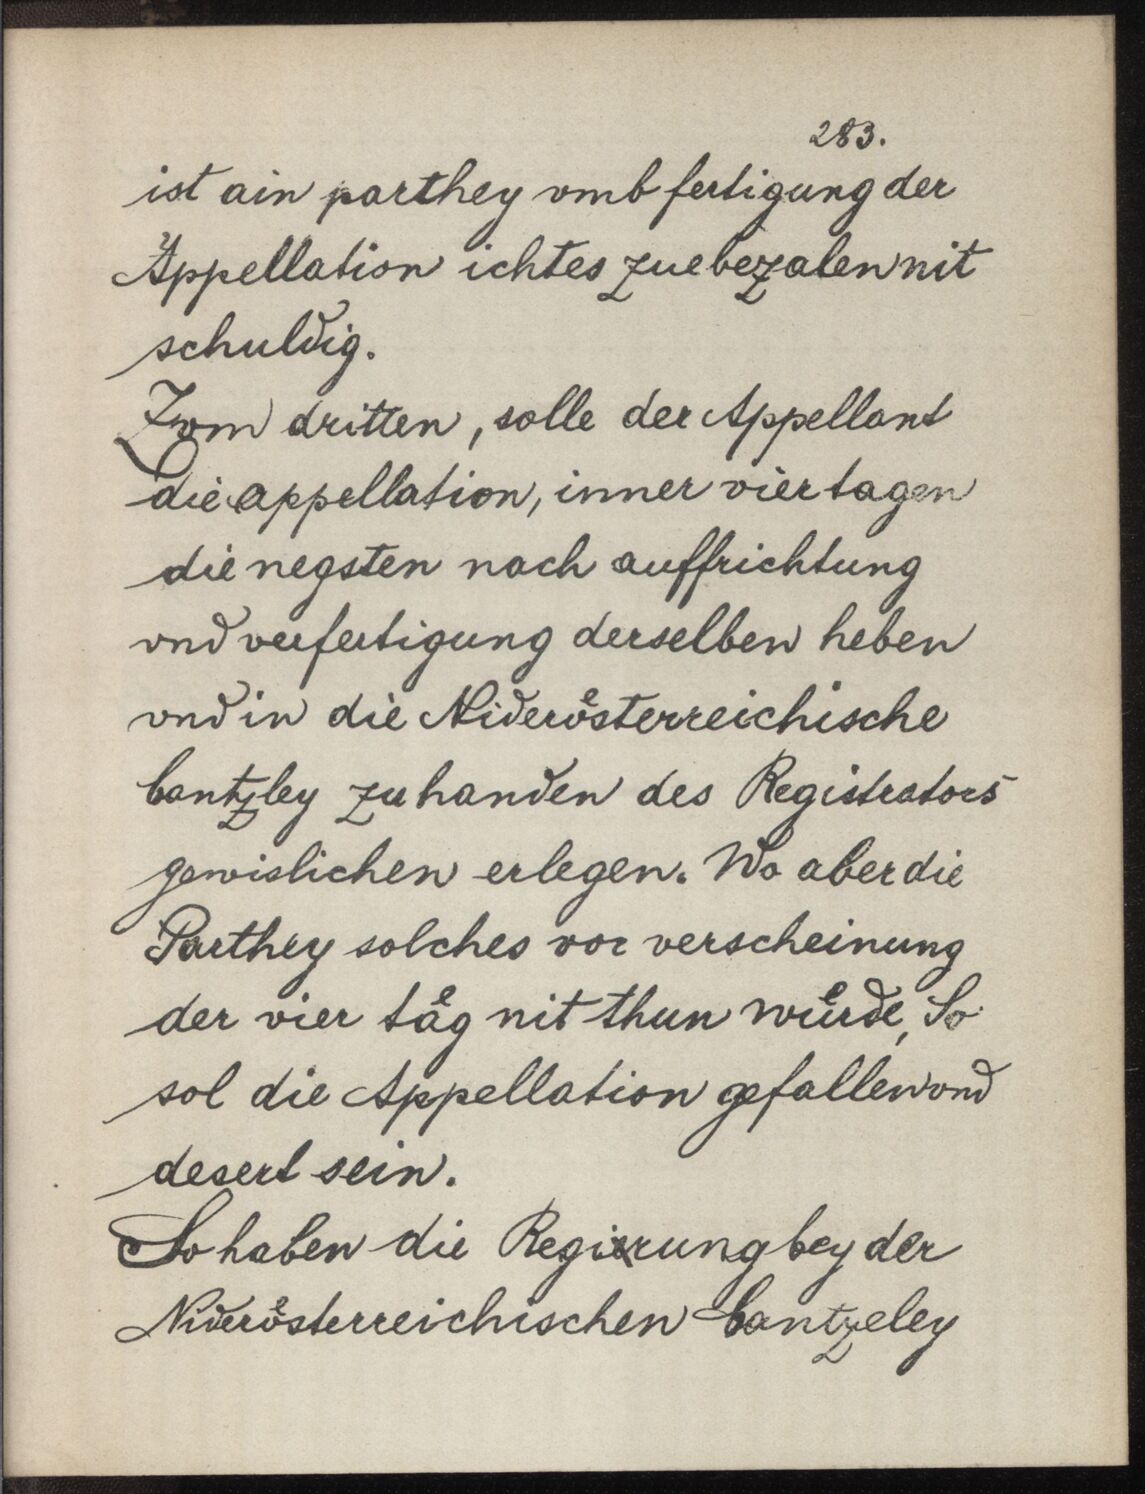 283.
ist ain parthey vmb fertigung der
Appellation ichtes zue bezalen nit
schuldig.
Zvm dritten, solle der Appellant
die appellation, inner vier tagen
die negsten nach auffrichtung
vnd verfertigung derselben heben
vnd in die Niderösterreichische
Cantzley zu handen des Registrators
gewislichen erlegen. Wo aber die
Parthey solches vor verscheinung
der vier täg nit thun würde, So
sol die Appellation gefallen vnd
desert sein.
So haben die Regierung bey der
Niderösterreichischen Cantzeley